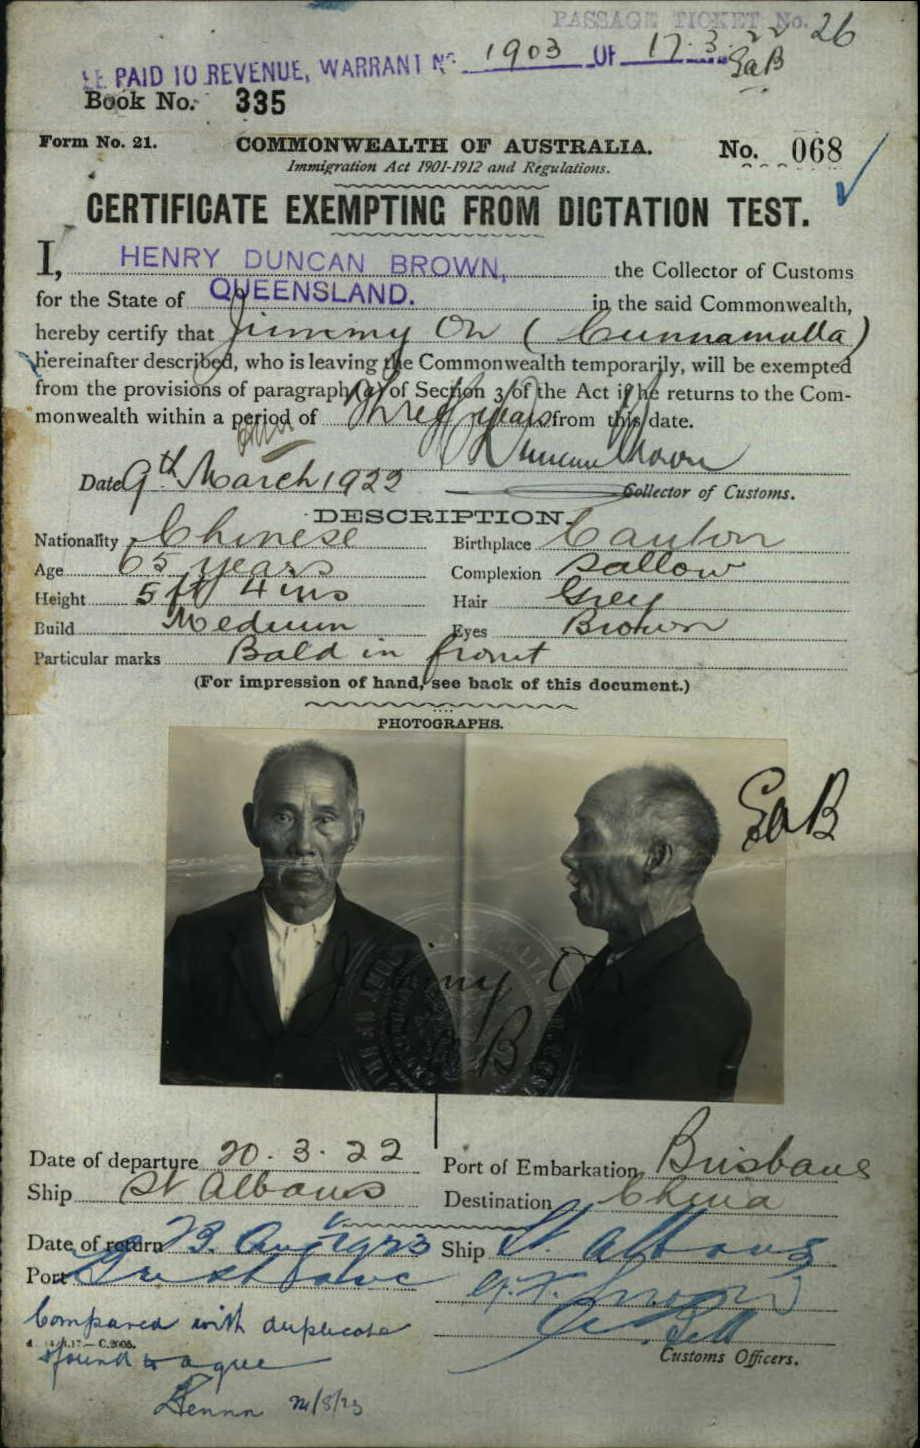 PASSAGE TICKET No. 26
PAID TO REVENUE, WARRANT No. 1903 OF 17.3.22
GaB
Book No. 335
Form No. 21. COMMONWEALTH OF AUSTRALIA. No. 068
Immigration Act 1901-1912 and Regulations.
CERTIFICATE EXEMPTING FROM DICTATION TEST.
I, HENRY DUNCAN BROWN, the Collector of Customs
for the State of QUEENSLAND. in the said Commonwealth,
hereby certify that Jimmy On (Cunnamulla)
hereinafter described, who is leaving the Commonwealth temporarily, will be exempted
from the provisions of paragraph (a) of Section 3 of the Act if he returns to the Com-
monwealth within a period of three years from this date.
Date 9th March 1922
Collector of Customs.
DESCRIPTION.
Nationality Chinese Birthplace Canton
Age 65 years Complexion Sallow
Height 5 ft 4 ins Hair Grey
Build Medium Eyes Brown
Particular marks Bald in front
(For impression of hand, see back of this document.)
PHOTOGRAPHS.
GaB
Jimmy On
B
Date of departure 20.3.22 Port of Embarkation Brisbane
Ship St Albans Destination China
Date of return 23. Aug 1923 Ship St. Albans
Port Brisbane
Compared with duplicate
& found to agree
Customs Officers.
24/8/23